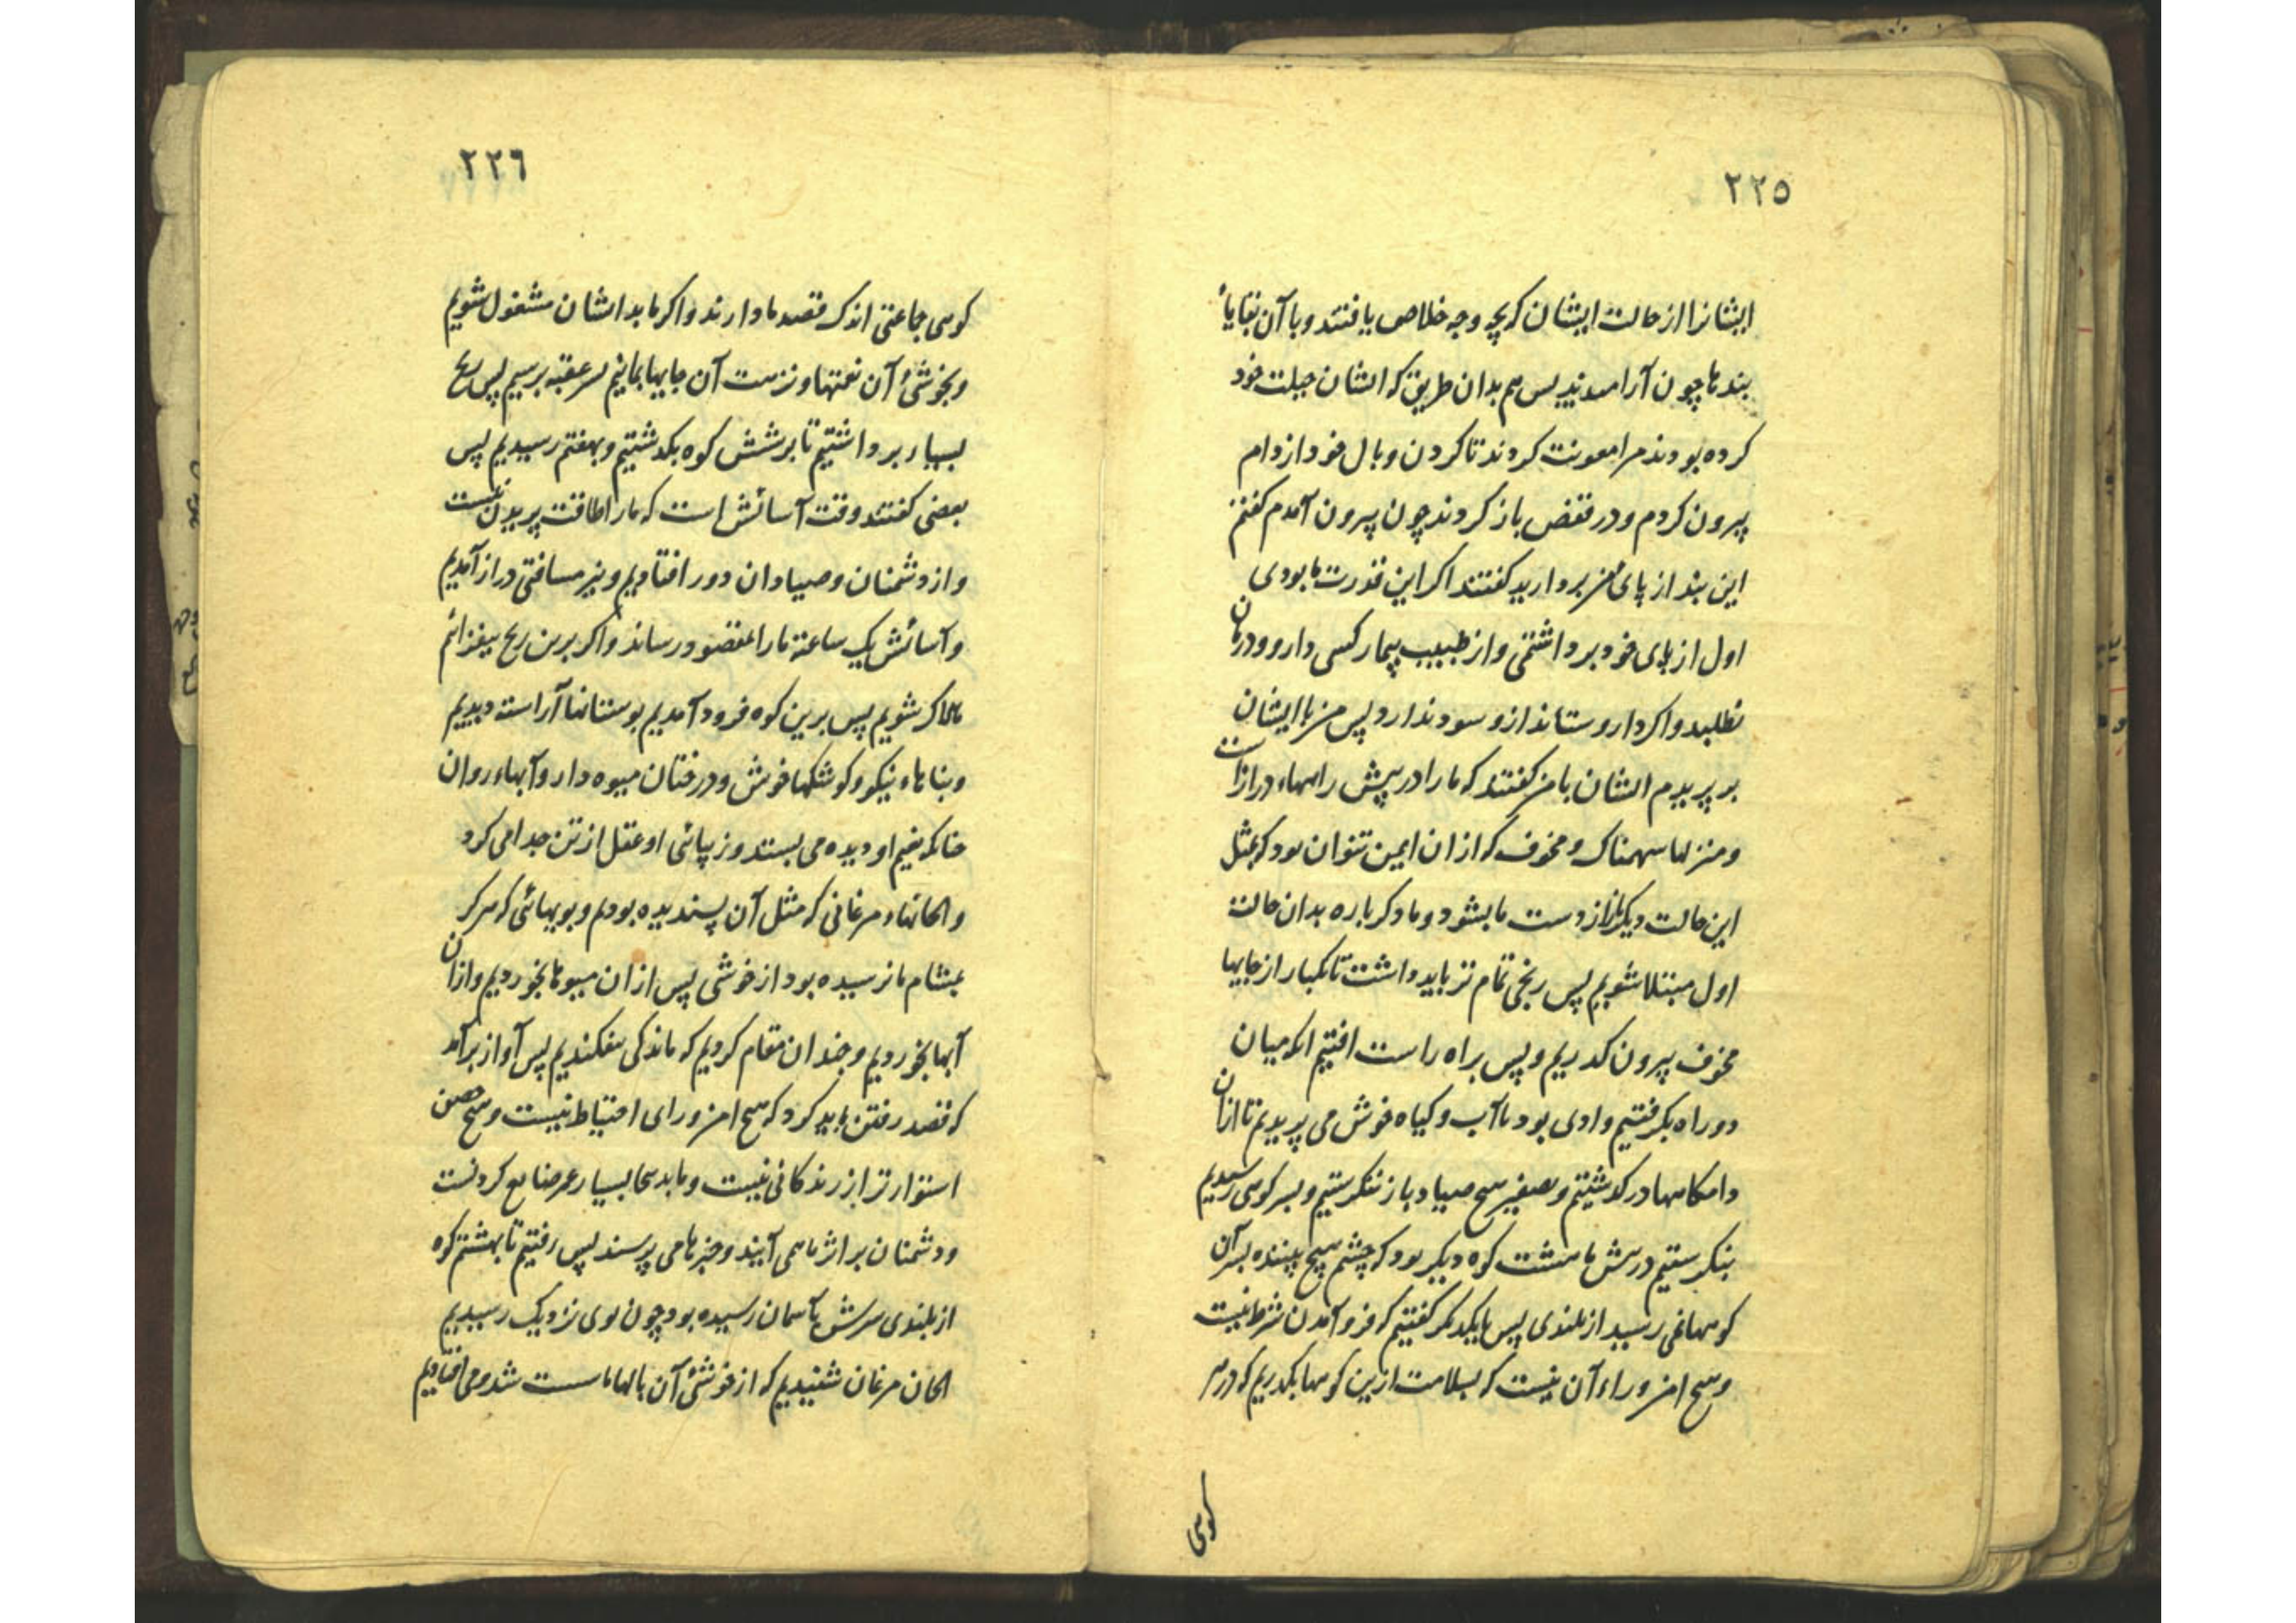 ٢٢٥
ایشانرا از حالت ایشان که بچه وجه خلاص یافتند و با آن بقایاء
بندها چون آرامیدند پس هم بدان طریق که ایشان حیلت خود
کرده بودند مرا معونت کردند تا کردن و بال خود از دام
بیرون کردم و در قفص باز کردند چون بیرون آمدم کفتم
این بند از پای من بردارید کفتند اکر این قدرت ما بودی
اول از پای خود برداشتمی و از طبیب بیمار کسی دارو و درمان
نطلبد و اکر دارو ستاند ازو سود ندارد پس من با ایشان
بر پریدم ایشان با من کفتند که ما را در پیش راهها دراز است
و منزلها سهمناک و مخوف که ازان ایمن نتوان بود که مثل
این حالت دیکر از دست ما بشود و ما دکر باره بدان حالت
اول مبتلا شویم پس رنجی تمام تر باید داشت تا یکبار از جایها
مخوف بیرون کذریم و پس براه راست افتیم انکه میان
دو راه بکرفتیم وادی بود با آب و کیاه خوش می پریدیم تا ازان
دامکاهها در کذشتیم و بصفیر هیچ صیاد باز ننکرستیم و بسر کوهی رسیدیم
بنکرستیم در پیش ما هشت کوه دیکر بود که چشم هیچ بیننده بسر آن
کوهها نمی رسید از بلندی پس با یکدیکر کفتیم که فرو آمدن شرط نیست
و هیچ امن وراء آن نیست که بسلامت ازین کوهها بکذریم که در هر
کوهی
٢٢٦
کوهی جماعتی اند که قصد ما دارند و اکر ما بدیشان مشغول شویم
و بخوشی آن نعمتها و نزهت آن جایها بمانیم بسر عقبه نرسیم پس رنج
بسیار برداشتیم تا بر شش کوه بکذشتیم و بهفتم رسیدیم پس
بعضی کفتند وقت آسائش است که ما را طاقت پریدن نیست
و از دشمنان و صیادان دور افتادیم و نیز مسافتی دراز آمدیم
و آسائش یک ساعة ما را بمقصود رساند و اکر برین رنج بیفزائیم
هلاک شویم پس برین کوه فرود آمدیم بوستانها آراسته دیدیم
و بناهاء نیکو و کوشکها خوش و درختان میوه دار و آبهاء روان
چنانکه نعیم او دیده می بستد و زیبائی او عقل از تن جدا می کرد
و الحانهاء مرغانی که مثل آن پسندیده بودیم و بویهائی که هرکز
بمشام ما نرسیده بود از خوشی پس ازان میوها بخوردیم و ازان
آبها بخوردیم و چندان مقام کردیم که ماندکی بیفکندیم پس آواز بر آمد
که قصد رفتن باید کرد که هیچ امن ورای احتیاط نیست و هیچ حصن
استوارتر از زندکانی نیست و ماندن اینجا بسیار عمر ضایع کردنست
و دشمنان بر اثر ما همی آیند و خبر ما می پرسند پس رفتیم تا بهشتم کوه
از بلندی سرش بآسمان رسیده بود چون بوی نزدیک رسیدیم
الحان مرغان شنیدیم که از خوشی آن بالها ما سست شد و می افتادیم